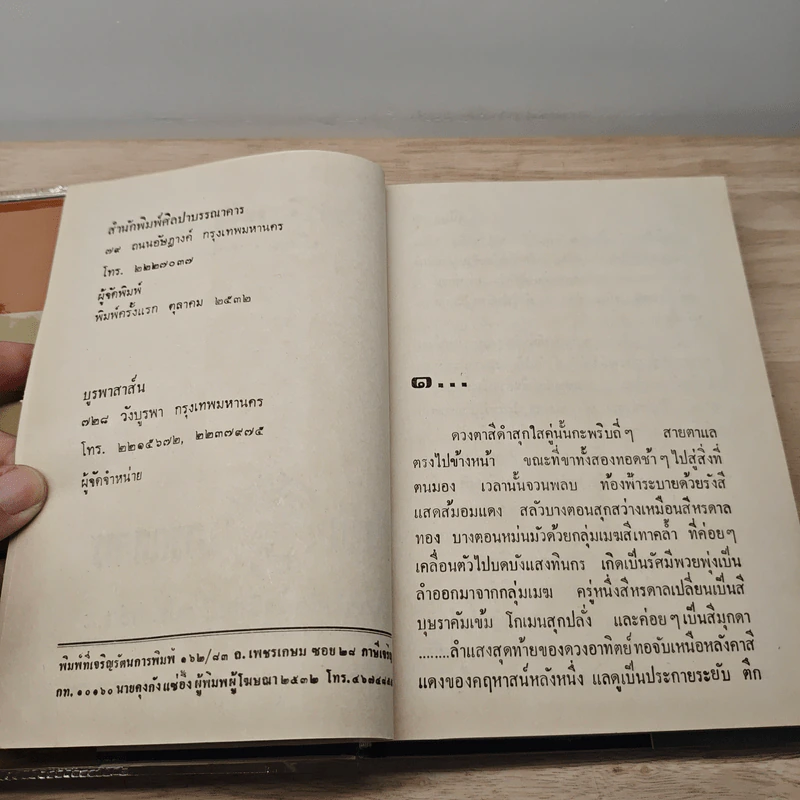 สำนักพิมพ์ศิลปาบรรณาคาร
๗๙ ถนนอัษฎางค์ กรุงเทพมหานคร
โทร. ๒๒๒๗๐๓๗
ผู้จัดพิมพ์
พิมพ์ครั้งแรก ตุลาคม ๒๕๓๒
บูรพาสาส์น
๗๒๘ วังบูรพา กรุงเทพมหานคร
โทร. ๒๒๑๕๖๗๒, ๒๒๓๗๙๗๕
ผู้จัดจำหน่าย
พิมพ์ที่เจริญรัตนการพิมพ์ ๑๖๒/๘๓ ถ. เพชรเกษม ซอย ๒๘ ภาษีเจริญ
กท. ๑๐๑๖๐ นายคุงกัง แซ่อึ้ง ผู้พิมพ์ผู้โฆษณา ๒๕๓๒ โทร.
๑...
ดวงตาสีดำสุกใสคู่นั้นกะพริบถี่ๆ สายตาแล
ตรงไปข้างหน้า ขณะที่ขาทั้งสองทอดช้าๆ ไปสู่สิ่งที่
ตนมอง เวลานั้นจวนพลบ ท้องฟ้าระบายด้วยรังสี
แสดส้มอมแดง สลัวบางตอนสุกสว่างเหมือนสีหรดาล
ทอง บางตอนหม่นมัวด้วยกลุ่มเมฆสีเทาคล้ำ ที่ค่อยๆ
เคลื่อนตัวไปบดบังแสงทินกร เกิดเป็นรัศมีพวยพุ่งเป็น
ลำออกมาจากกลุ่มเมฆ ครู่หนึ่งสีหรดาลเปลี่ยนเป็นสี
บุษราคัมเข้ม โกเมนสุกปลั่ง และค่อยๆ เป็นสีมุกดา
........ลำแสงสุดท้ายของดวงอาทิตย์ทอจับเหนือหลังคาสี
แดงของคฤหาสน์หลังหนึ่ง แลดูเป็นประกายระยับ ตึก